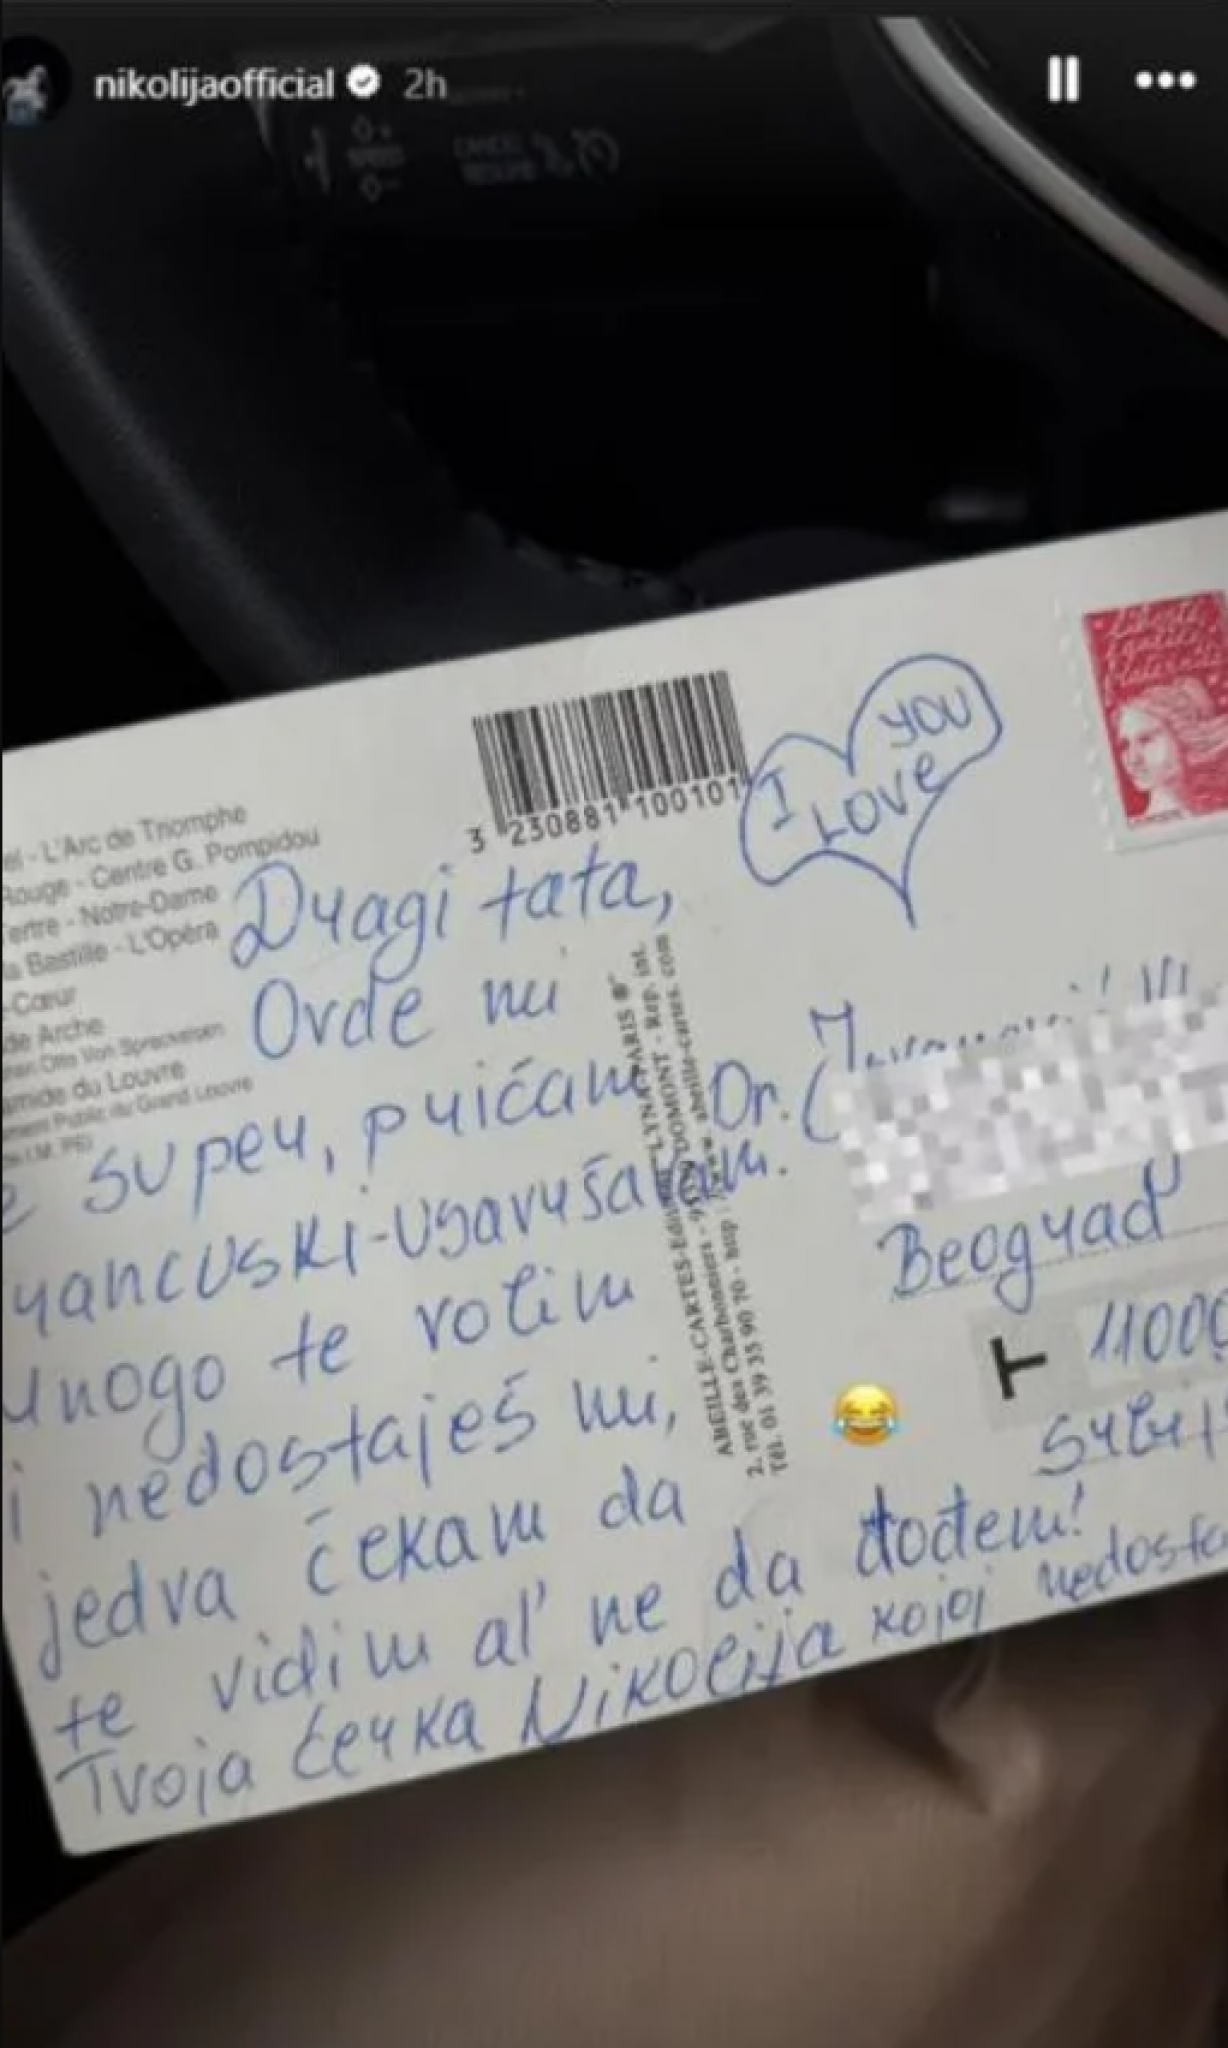 nikolijaofficial 2h
CANCEL
el - L'Arc de Triomphe
Rouge - Centre G. Pompidou
Tertre - Notre-Dame
la Bastille - L'Opéra
-Cœur
de Arche
Otto Von Spreckelsen
amide du Louvre
ment Public du Grand Louvre
I.M. PEI
3 230881 100101
I LOVE YOU
Liberté
Egalité
Fraternité
Dragi tata,
Ovde mi
e super, pričam
rancuski-usavršavam.
mnogo te volim
i nedostaješ mi,
jedva čekam da
te vidim al' ne da dođem!
Tvoja ćerka Nikolija kojoj nedosta
ABEILLE-CARTES-Editions "LYNA-PARIS ®"
2, rue des Charbonniers - DOMONT - Rep. int.
Tél. 01 39 35 90 70 - http : //www. abeille-cartes. com
Dr.
Beograd
T
11000
Srbij
😂